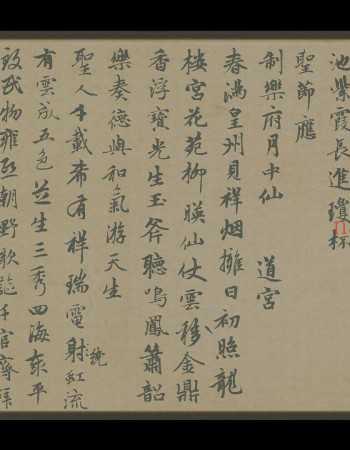 池紫霞長進瓊杯
聖節應
制樂府月中仙 道宮
春滿皇州見祥烟擁日初照龍
樓宮花苑柳暎仙仗雲移金鼎
香浮寶光生玉斧聽鳴鳳簫韶
樂奏德與和氣游天生
聖人千載希有祥瑞電繞射虹流
有雲成五色芝生三秀四海泰平
致民物雍熙朝野歌謠千官齊拜